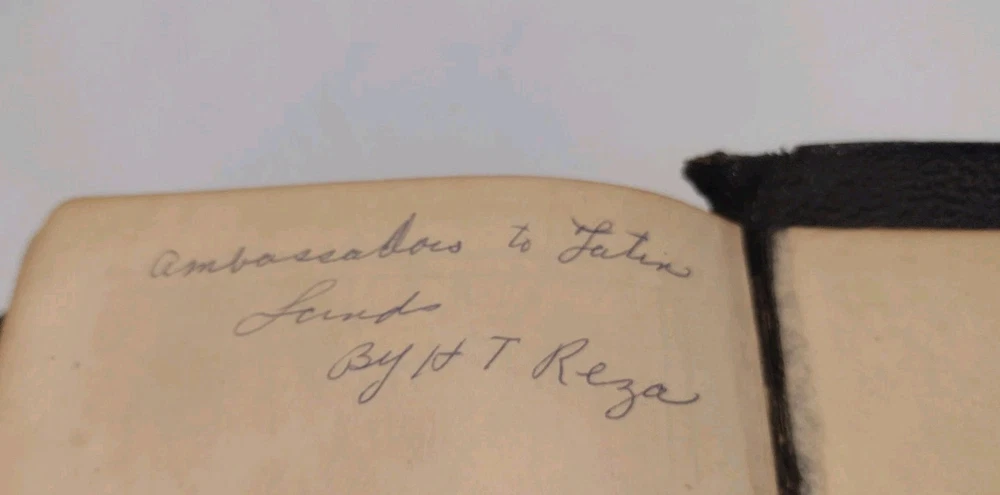 Ambassadors to Latin
Lands
By H T Reza